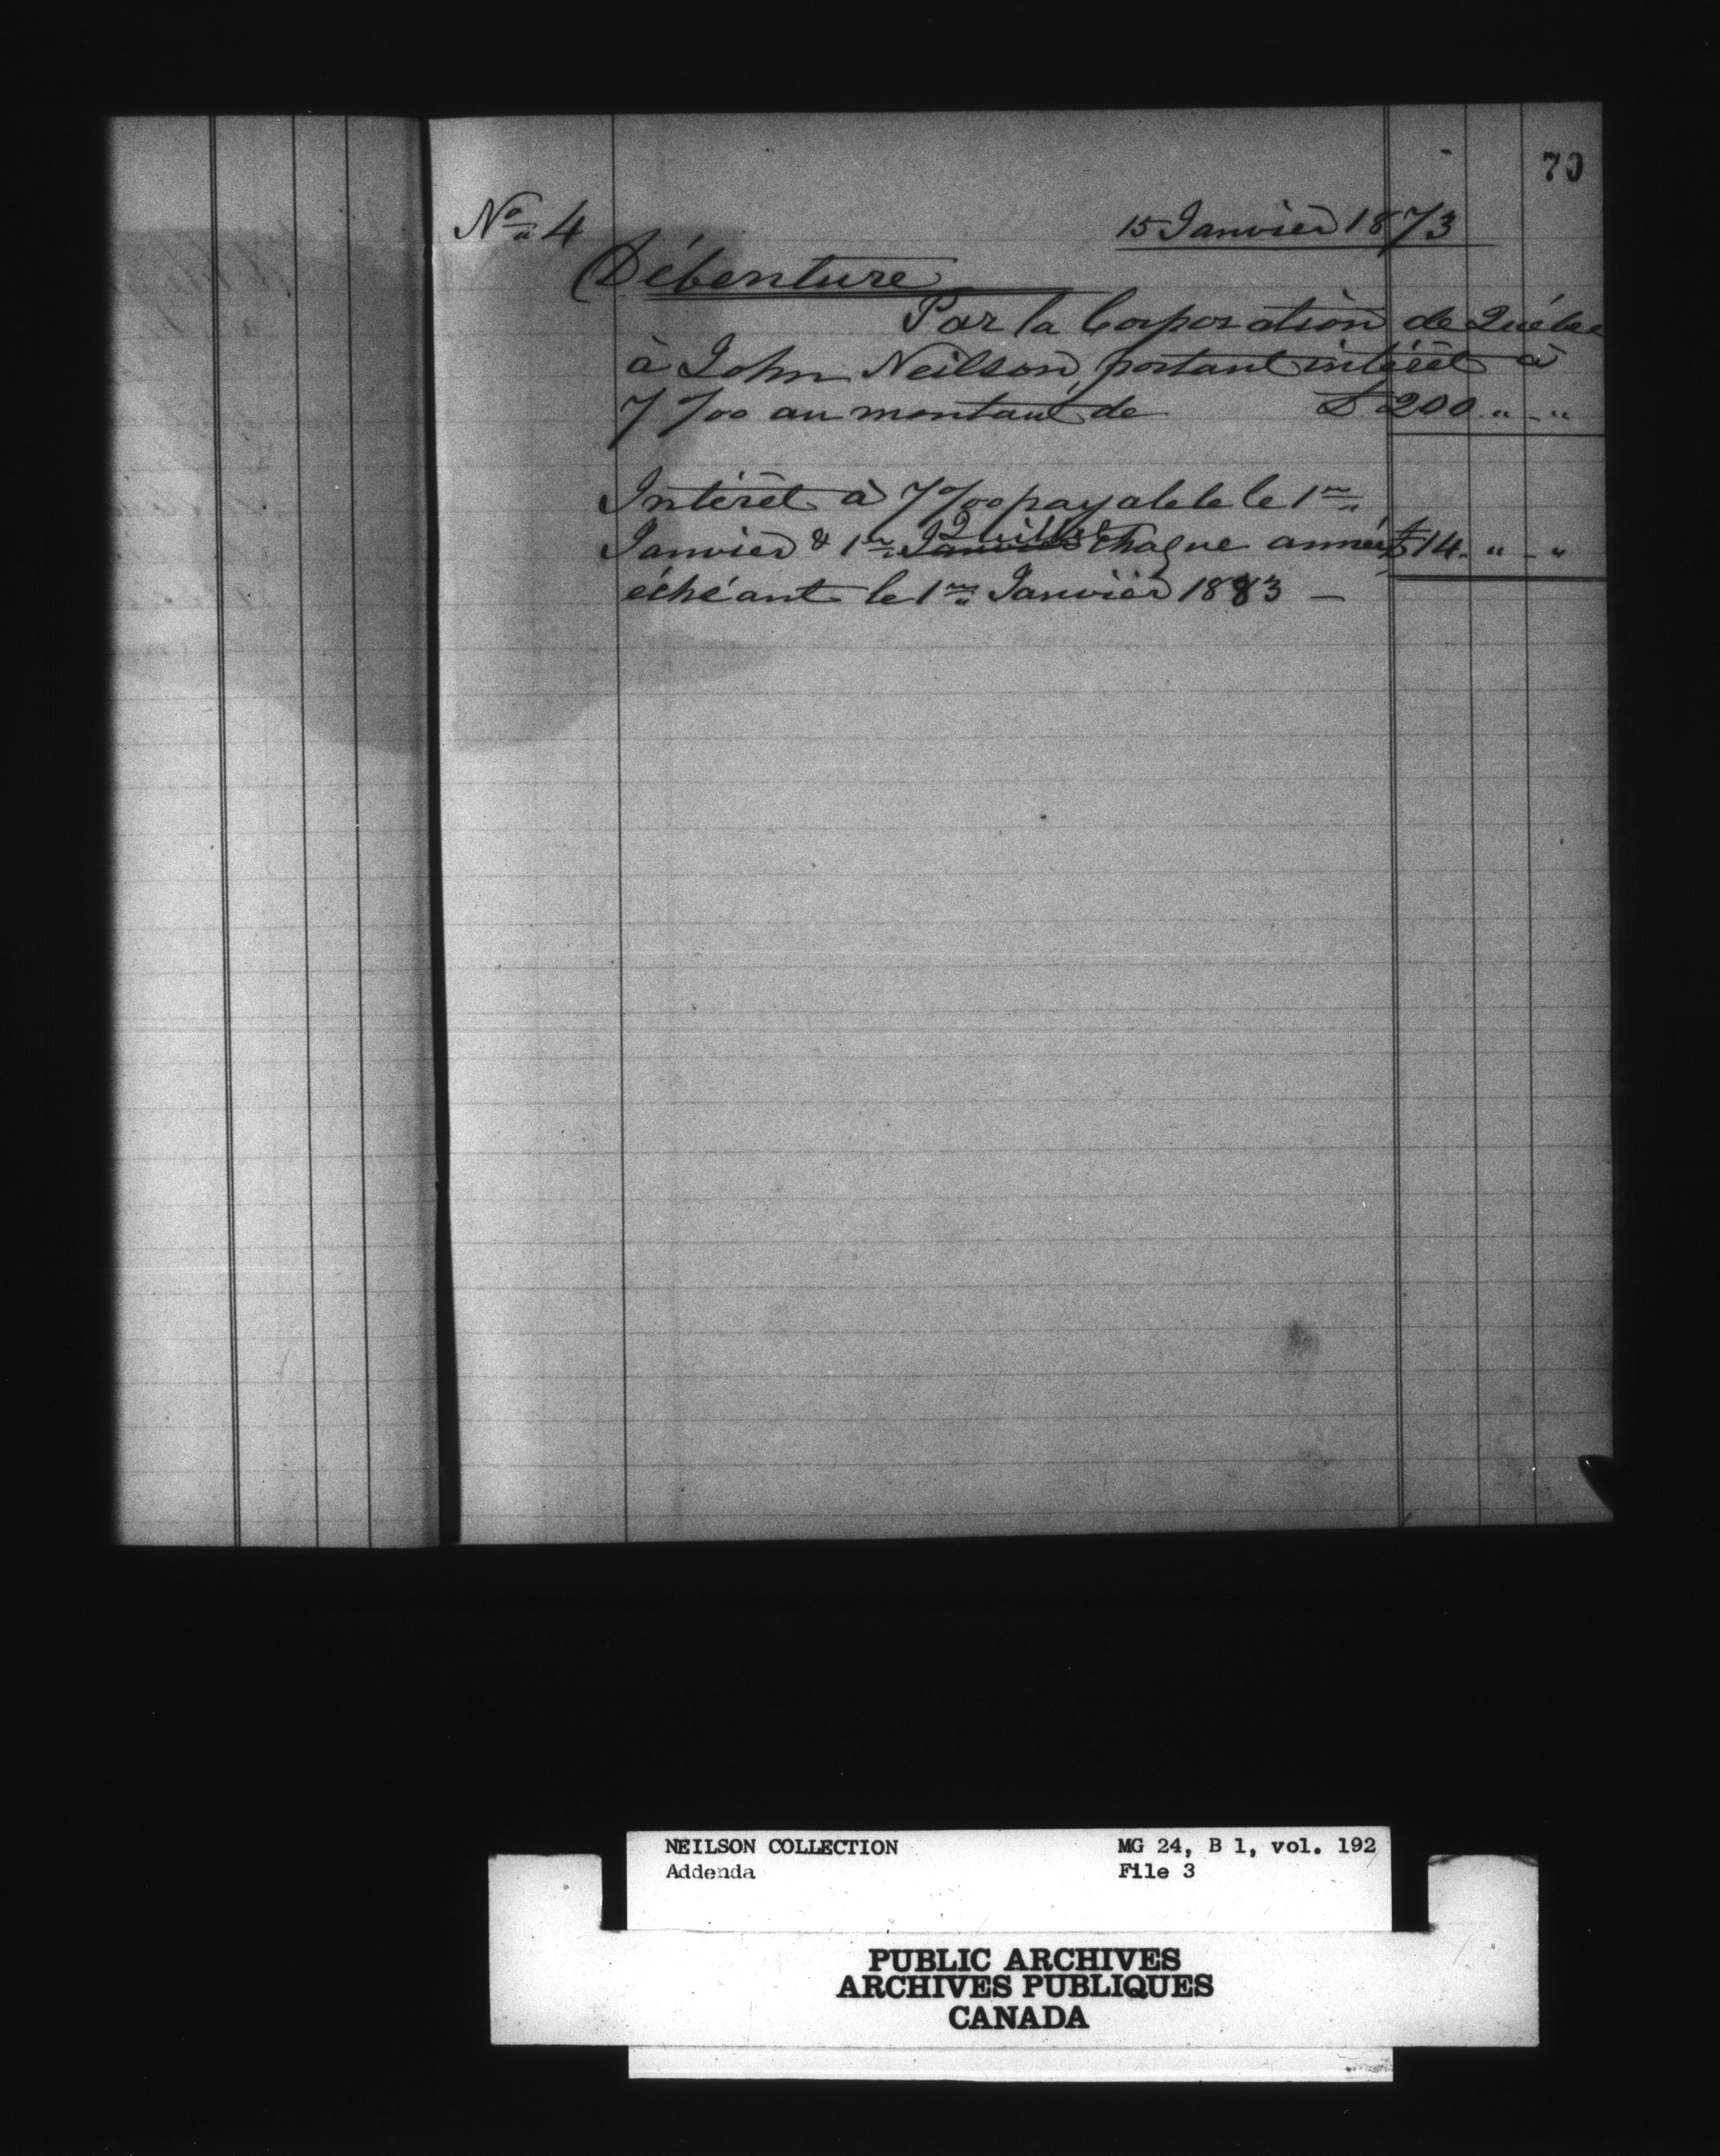 70
No 4 15 Janvier 1873
Débenture
Par la Corporation de Québec
à John Neilson, portant intérêt à
7 %00 au montant de £ 200 " - "
Intérêt à 7 %00 payable le 1er
Juillet
Janvier & 1er Janvier chaque année £ 14 - " - "
échéant le 1er Janvier 1883 —
NEILSON COLLECTION MG 24, B 1, vol. 192
Addenda File 3
PUBLIC ARCHIVES
ARCHIVES PUBLIQUES
CANADA